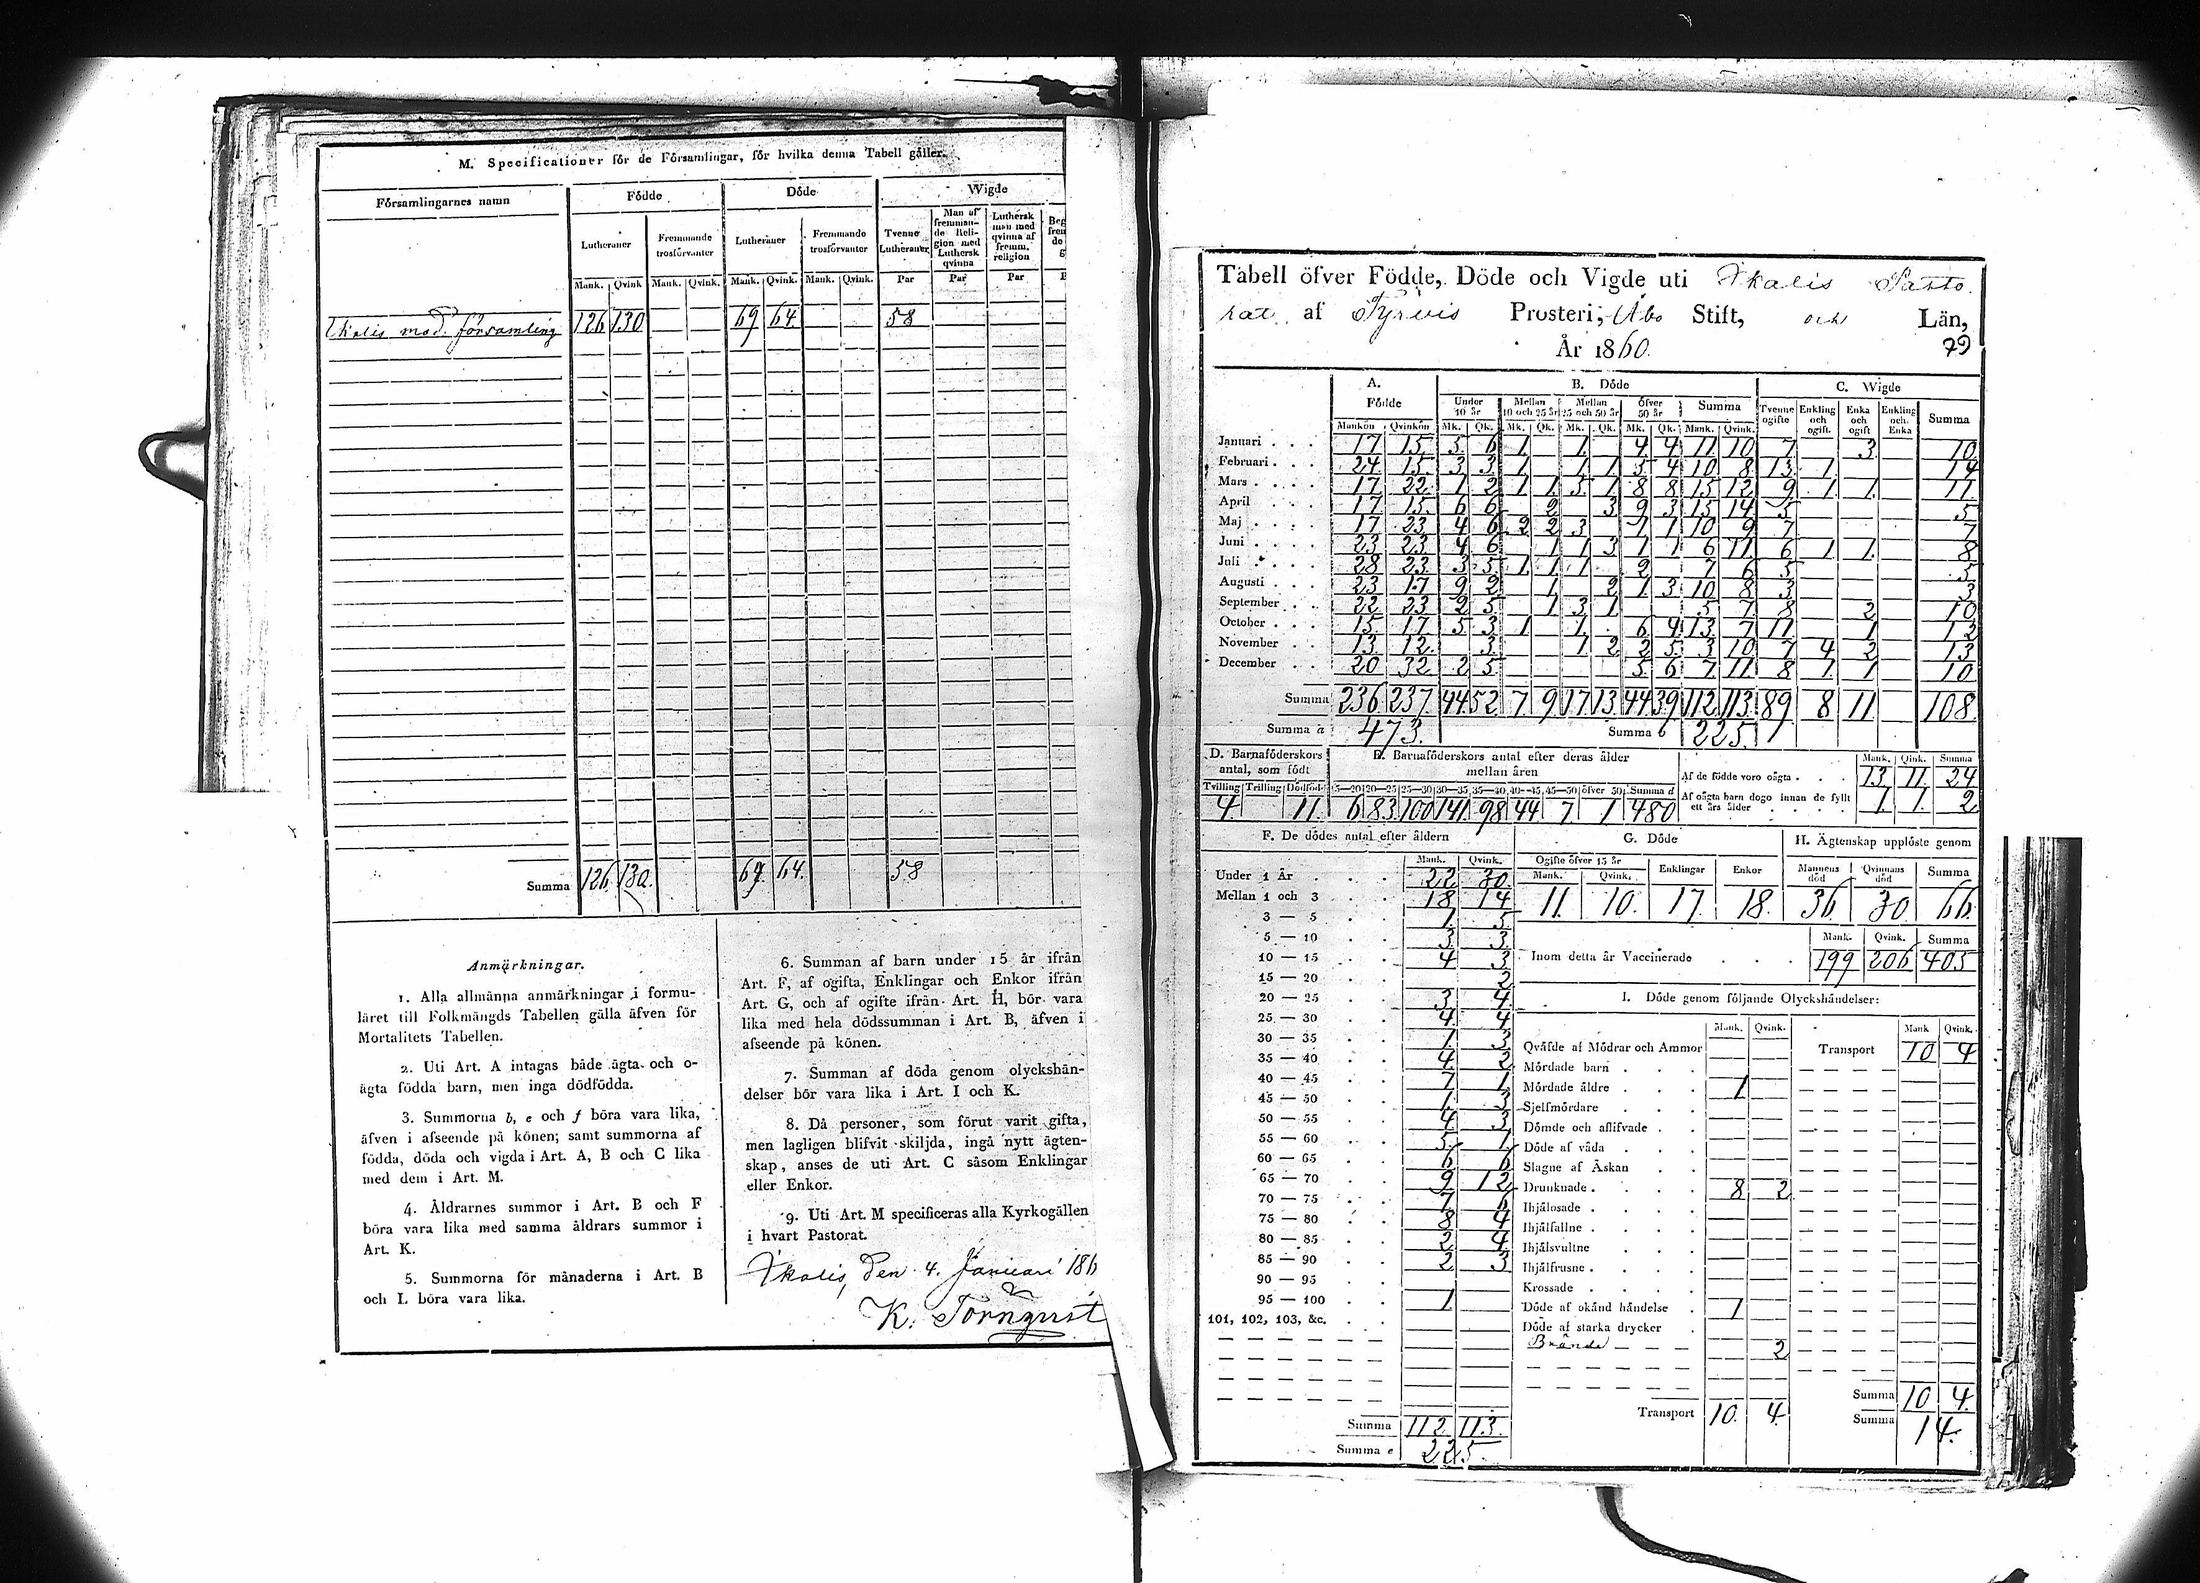 M. Specificationer för de Församlingar, för hvilka denna Tabell gäller.
Församlingarnes namn Födde Döde Wigde
Lutheraner Fremmande trosförvanter Lutheraner Fremmande trosförvanter Tvenne Lutheraner Man af fremmande Religion med Luthersk qvinna Luthersk man med qvinna af fremm. religion
Mank. Qvink Mank. Qvink. Mank. Qvink. Mank. Qvink. Par Par Par
Ikalis mod. församling 126 130 69 64 58
Summa 126 130. 69. 64. 58
Anmärkningar.
1. Alla allmänna anmärkningar i formu-
läret till Folkmängds Tabellen gälla äfven för
Mortalitets Tabellen.
2. Uti Art. A intagas både ägta och o-
ägta födda barn, men inga dödfödda.
3. Summorna b, e och f böra vara lika,
äfven i afseende på könen; samt summorna af
födda, döda och vigda i Art. A, B och C lika
med dem i Art. M.
4. Åldrarnes summor i Art. B och F
böra vara lika med samma åldrars summor i
Art. K.
5. Summorna för månaderna i Art. B
och L böra vara lika.
6. Summan af barn under 15 år ifrån
Art. F, af ogifta, Enklingar och Enkor ifrån
Art. G, och af ogifte ifrån Art. H, bör vara
lika med hela dödssumman i Art. B, äfven i
afseende på könen.
7. Summan af döda genom olyckshän-
delser bör vara lika i Art. I och K.
8. Då personer, som förut varit gifta,
men lagligen blifvit skiljda, ingå nytt ägten-
skap, anses de uti Art. C såsom Enklingar
eller Enkor.
9. Uti Art. M specificeras alla Kyrkogällen
i hvart Pastorat.
Ikalis, den 4. Januari 186
K. Törnqvist
Tabell öfver Födde, Döde och Vigde uti Ikalis Pasto
rat af Tyrvis Prosteri, Åbo Stift, och Län,
År 1860. 79
A. Födde B. Döde C. Wigde
Under 10 år Mellan 10 och 25 år Mellan 25 och 50 år Öfver 50 år Summa Tvenne ogifte Enkling och ogift. Enka och ogift Enkling och Enka Summa
Mankön Qvinkön Mk. Qk. Mk. Qk. Mk. Qk. Mk. Qk. Mank. Qvink.
Januari 17 15 5 6 1 1 4 4 11 10 7 3 10
Februari 24 15 3 3 1 1 1 5 4 10 8 13 1 14
Mars 17 22 1 2 1 1 5 1 8 8 15 12 9 1 1 11
April 17 15 6 6 2 3 9 3 15 14 5 5
Maj 17 23 4 6 2 2 3 1 1 10 9 7 7
Juni 23 23 4 6 1 1 3 1 1 6 11 6 1 1 8
Juli 28 23 3 5 1 1 1 2 7 6 5 5
Augusti 23 17 9 2 1 2 1 3 10 8 3 3
September 22 23 2 5 1 3 1 5 7 8 2 10
October 15 17 5 3 1 1 6 4 13 7 11 1 12
November 13 12 3 1 2 2 5 3 10 7 4 2 13
December 20 32 2 5 5 6 7 11 8 1 1 10
Summa 236 237 44 52 7 9 17 13 44 39 112 113 89 8 11 108
Summa a 473. Summa b 225
D. Barnaföderskors antal, som födt
Tvilling Trilling Dödfödt
4 11
E. Barnaföderskors antal efter deras ålder mellan åren
15—20 20—25 25—30 30—35 35—40 40—45 45—50 öfver 50 Summa d
6 83 100 141 98 44 7 1 480
Mank. Qink. Summa
Af de födde voro oägta 13 11 24
Af oägta barn dogo innan de fyllt ett års ålder 1 1 2
F. De dödes antal efter åldern
Mank. Qvink.
Under 1 År 22 30
Mellan 1 och 3 18 14
3 — 5 1 5
5 — 10 3 3
10 — 15 4 3
15 — 20 2
20 — 25 3 4
25 — 30 4 4
30 — 35 1 3
35 — 40 4 2
40 — 45 7 1
45 — 50 1 3
50 — 55 4 3
55 — 60 5 1
60 — 65 6 6
65 — 70 9 12
70 — 75 7 6
75 — 80 8 4
80 — 85 2 4
85 — 90 2 3
90 — 95
95 — 100 1
101, 102, 103, &c.
Summa 112 113
Summa e 225
G. Döde
Ogifte öfver 15 år Enklingar Enkor
Mank. Qvink.
11 10 17 18
H. Ägtenskap upplöste genom
Mannens död Qvinnans död Summa
36 30 66
Mank. Qvink. Summa
Inom detta år Vaccinerade 199 206 405
I. Döde genom följande Olyckshändelser:
Mank. Qvink. Mank Qvink.
Qväfde af Mödrar och Ammor
Mördade barn
Mördade äldre 1
Sjelfmördare
Dömde och aflifvade
Döde af våda
Slagne af Åskan
Drunknade 8 2
Ihjälosade
Ihjälfallne
Ihjälsvultne
Ihjälfrusne
Krossade
Döde af okänd händelse 1
Döde af starka drycker
Brände 2
Transport 10 4
Transport 10 4
Summa 10 4
Summa 14.